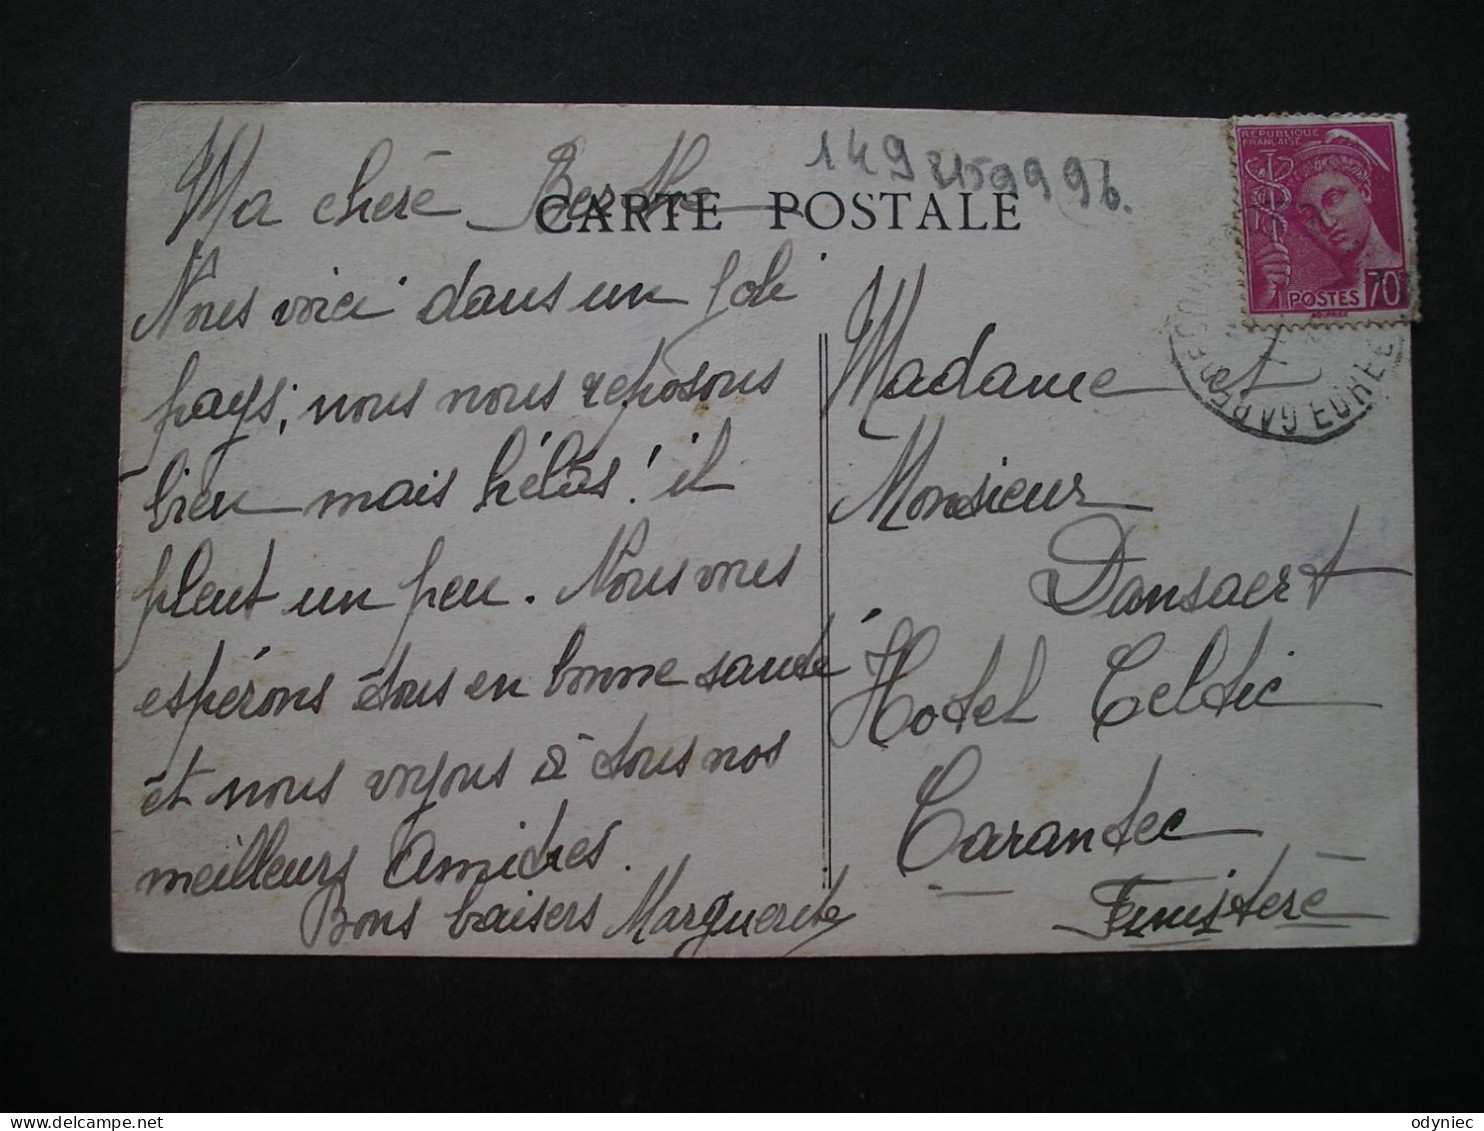 Ma chère Berthe
CARTE POSTALE
149 
Nous voici dans un joli
pays, nous nous reposons
bien mais hélas! il
pleut un peu. Nous vous
espérons tous en bonne santé
et nous voyons à tous nos
meilleurs Amitiés.
Bons baisers Marguerite
Madame et
Monsieur
Dansaert
Hotel Celtic
Carantec
Finistère
REPUBLIQUE
FRANÇAISE
POSTES 70
GARE
EURE
odyniec